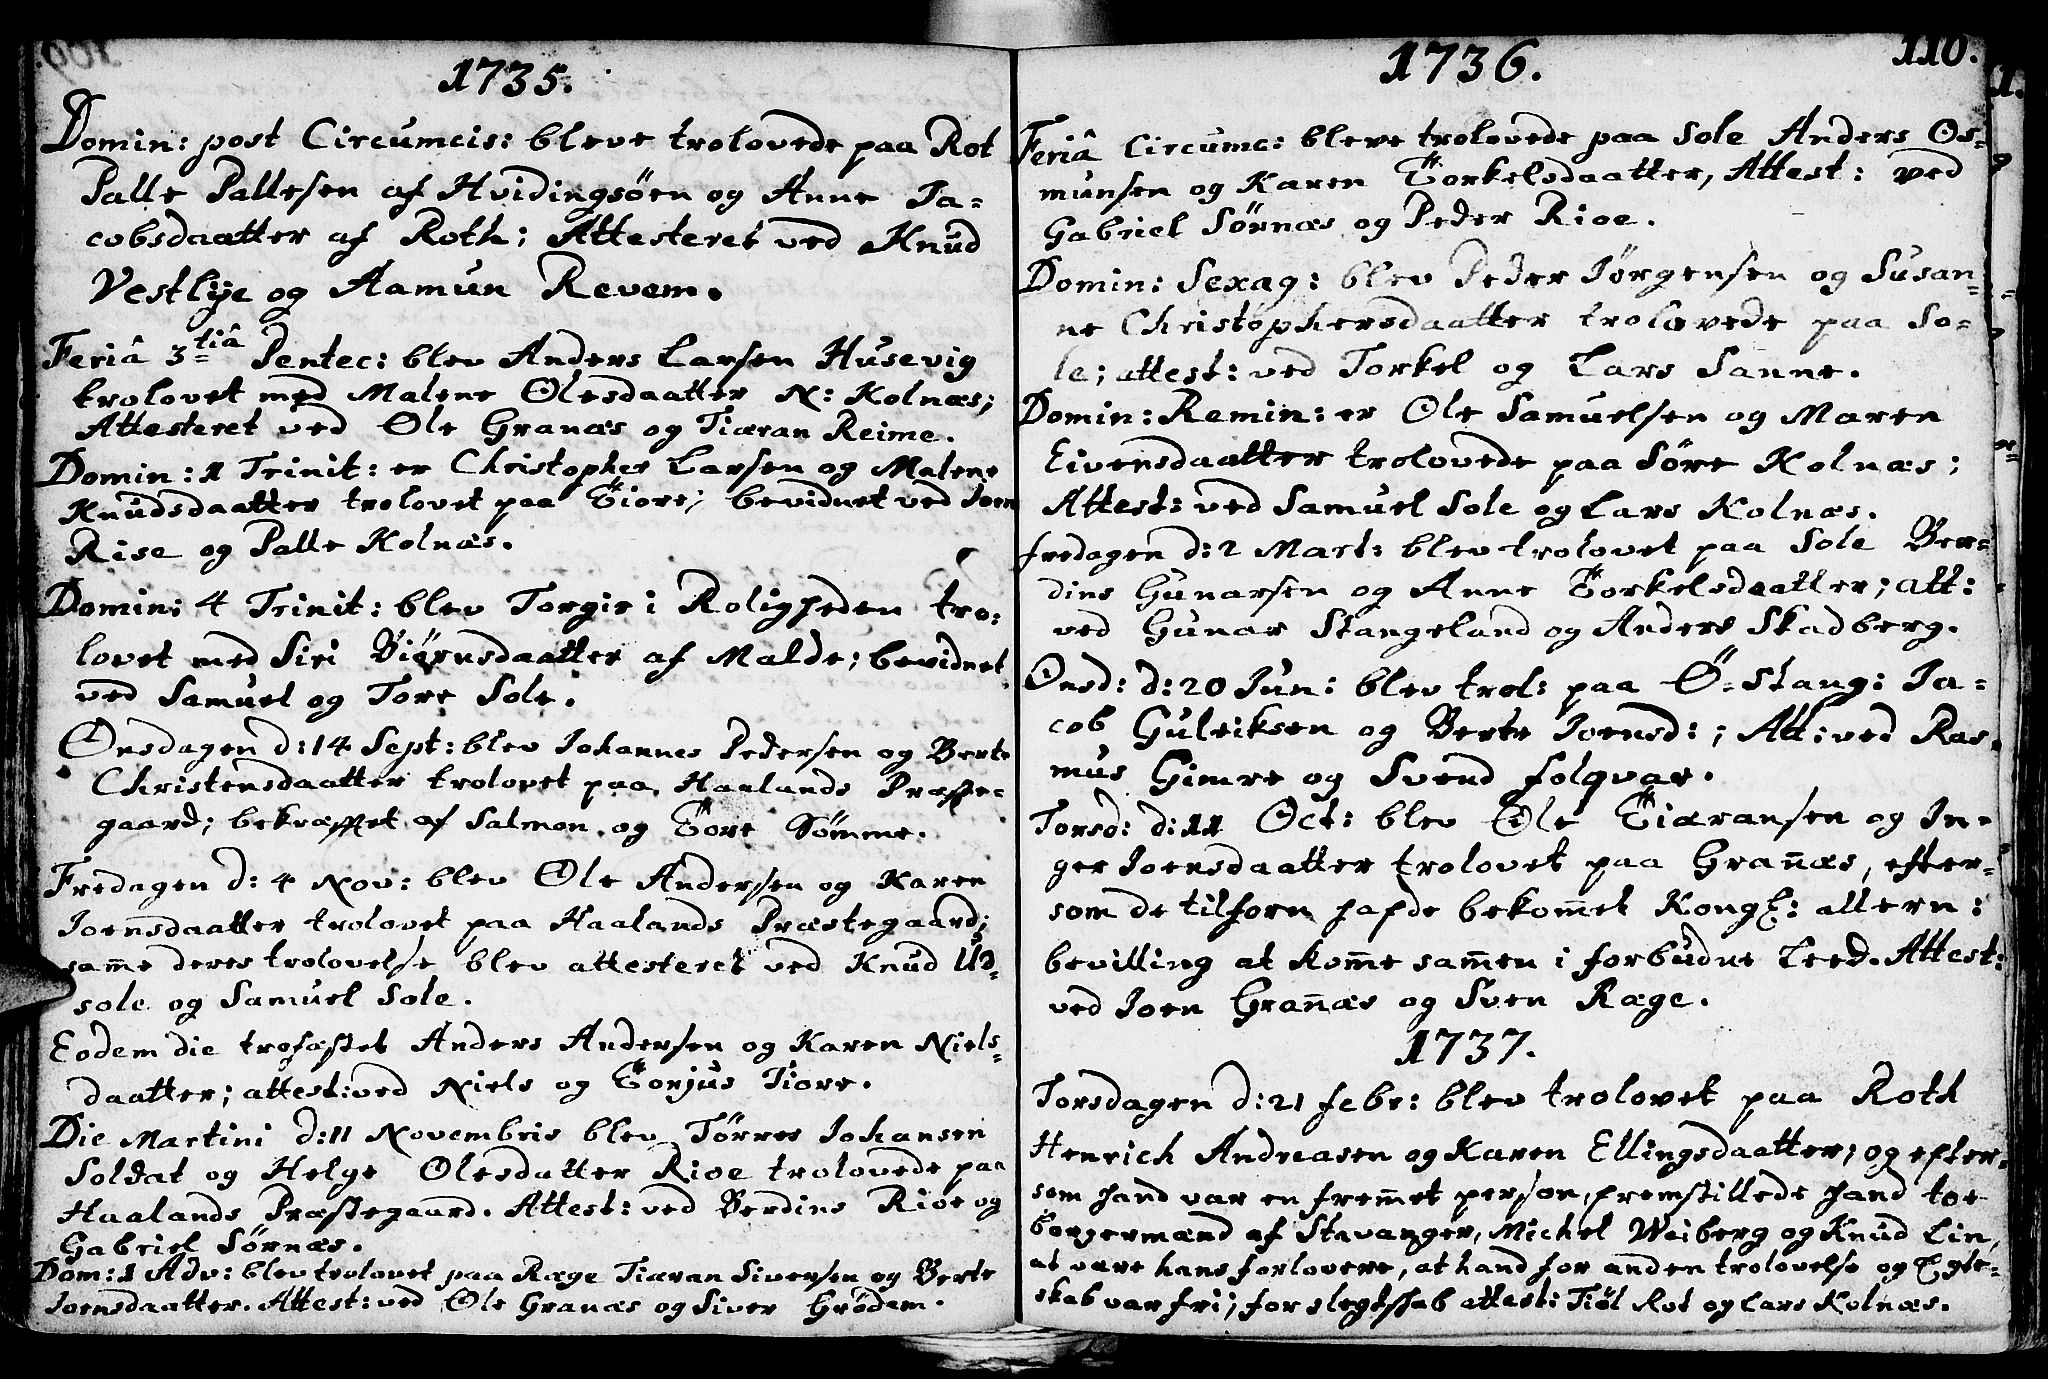 1735.
Domin: post Circumcis: bleve trolovede paa Rot
Palle Pallesen af Hvidingsöen og Anne Ja=
cobsdaatter af Roth; Attesteret ved Knud
Vestlije og Aamun Revem.
Feriâ 3tiâ Pentec: blev Anders Larsen Husevig
trolovet med Malene Olesdaatter N: Kolnæs;
Attesteret ved Ole Granæs og Tiæran Reime.
Domin: 1 Trinit: er Christopher Larsen og Malene
Knudsdaatter trolovet paa Tiore; bevidnet ved Joen
Rise og Palle Kolnæs.
Domin: 4 Trinit: blev Torgir i Roligheden tro=
lovet med Siri Biörnsdaatter af Malde; bevidnet
ved Samuel og Tore Sole.
Onsdagen d: 14 Sept: blev Johannes Pedersen og Berte
Christensdaatter trolovet paa Haalands Præste=
gaard; bekræfftet af Salmon og Tore Sömme.
Fredagen d: 4 Nov: blev Ole Anderssen og Karen
Joensdaatter trolovet paa Haalands Præstegaard;
sam̄e deres trolovelse blev attesteret ved Knud Ud=
sole og Samuel Sole.
Eodem die trofæstet Anders Andersen og Karen Niels=
daatter; attest: ved Niels og Torjus Tiore.
Die Martini d: 11 Novembris blev Törres Johansen
Soldat og Helge Olesdatter Rioe trolovede paa
Haalands Præstegaard. Attest: ved Berdins Rioe og
Gabriel Sörnæs.
Dom: 1 Adv: blev trolovet paa Ræge Tiæran Siversen og Berte
Joensdaatter. Attest: ved Ole Granæs og Siver Grödem.
110.
1736.
Feriâ Circumc: bleve trolovede paa Sole Anders Os=
munsen og Karen Torkelsdaatter, Attest: ved
Gabriel Sörnæs og Peder Rioe.
Domin: Sexag: blev Peder Jörgensen og Susan=
ne Christophersdaatter trolovede paa So=
le; attest: ved Torkel og Lars Sanne.
Domin: Remin: er Ole Samuelsen og Maren
Eivensdaatter trolovede paa Söre Kolnæs;
Attest: ved Samuel Sole og Lars Kolnæs.
fredagen d: 2 Mart: blev trolovet paa Sole Ber=
dins Gunarsen og Anne Torkelsdaatter; att:
ved Gunar Stangeland og Anders Skadberg.
Onsd: d: 20 Jun: blev trol: paa Ö= Stang: Ja=
cob Guleiksen og Berte Joensd:; Att: ved Ras=
mus Gimre og Svend folqvar.
Torsd: d: 11 Oct: blev Ole Tiæransen og In=
ger Joensdaatter trolovet paa Gran̄æs, efter=
som de tilforn hafde bekom̄et Kongl: allern:
bevilling at kom̄e sam̄en i forbudne Leed. Attest:
ved Joen Gran̄æs og Sven Ræge.
1737.
Torsdagen d: 21 febr: blev trolovet paa Roth
Henrich Andreasen og Karen Ellingsdaatter; og efter=
som hand var en frem̄et person, fremstillede hand toe
borgermænd af Stavanger, Michel Weiberg og Knud Lin,
at være hans forlovere, at hand for anden trolovelse og Egte=
skab var fri; for slegtskab attest: Tiöl Rot og Lars Kolnæs.